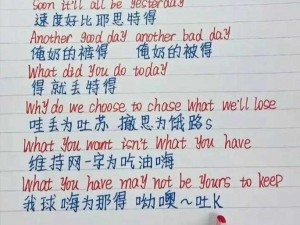 Soon it'll all be yesterday
速度好比耶思特得
Another good day another bad day
俺奶的裤得 俺奶的被得
What did you do today
得就丢特得
Why do we choose to chase what we'll lose
哇丢为吐苏 撤思为饿路s
What you want isn't what you have
维持网一字为吃油嗨
What you have may not be yours to keep
我球嗨为那得 呦噢~吐K